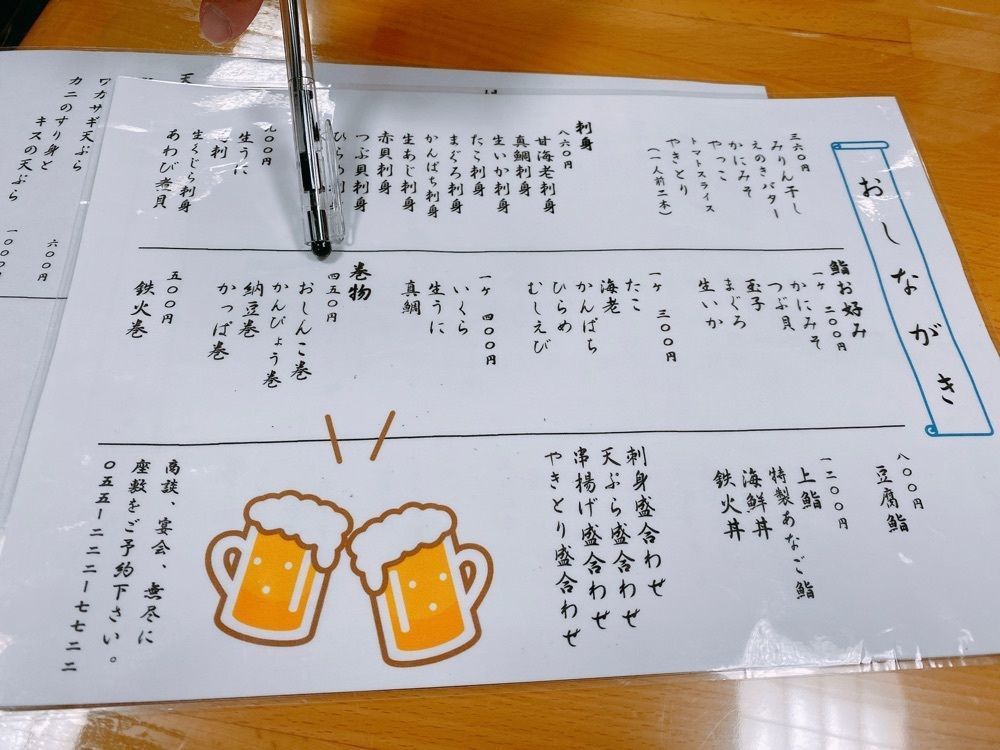 おしながき
三六〇円
みりん干し
えのきバター
かにみそ
やっこ
トマトスライス
やきとり
(一人前二本)
刺身
八六〇円
甘海老刺身
真鯛刺身
生いか刺身
たこ刺身
まぐろ刺身
かんぱち刺身
生あじ刺身
赤貝刺身
つぶ貝刺身
ひらめ
九〇〇円
生うに
刺
生くじら刺身
あわび煮貝
鮨お好み
一ヶ 二〇〇円
かにみそ
つぶ貝
玉子
まぐろ
生いか
一ヶ 三〇〇円
たこ
海老
かんぱち
ひらめ
むしえび
一ヶ 四〇〇円
いくら
生うに
真鯛
巻物
四五〇円
おしんこ巻
かんぴょう巻
納豆巻
かっぱ巻
五〇〇円
鉄火巻
八〇〇円
豆腐鮨
一二〇〇円
上鮨
特製あなご鮨
海鮮丼
鉄火丼
刺身盛合わせ
天ぷら盛合わせ
串揚げ盛合わせ
やきとり盛合わせ
商談、宴会、無尽に
座敷をご予約下さい。
〇五五-二二二-七七二二
天
ワカサギ天ぷら
カニのすり身と
キスの天ぷら
六〇〇円
一〇〇〇円